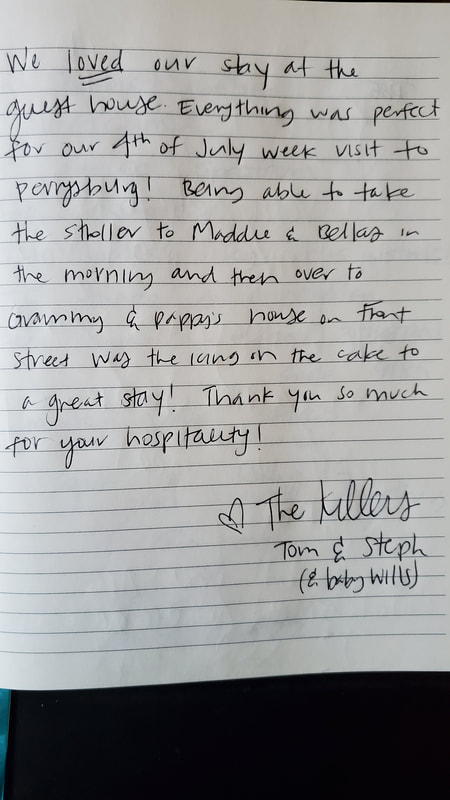 We loved our stay at the
guest house. Everything was perfect
for our 4th of July week visit to
perrysburg! Being able to take
the stroller to Maddie & Bellas in
the morning and then over to
Grammy & pappy's house on Front
street was the icing on the cake to
a great stay! Thank you so much
for your hospitality!
♡ The
Tom & Steph
(& baby Wills)